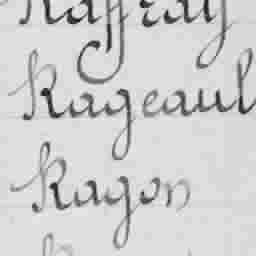 Raffray
Rageaul
Ragon